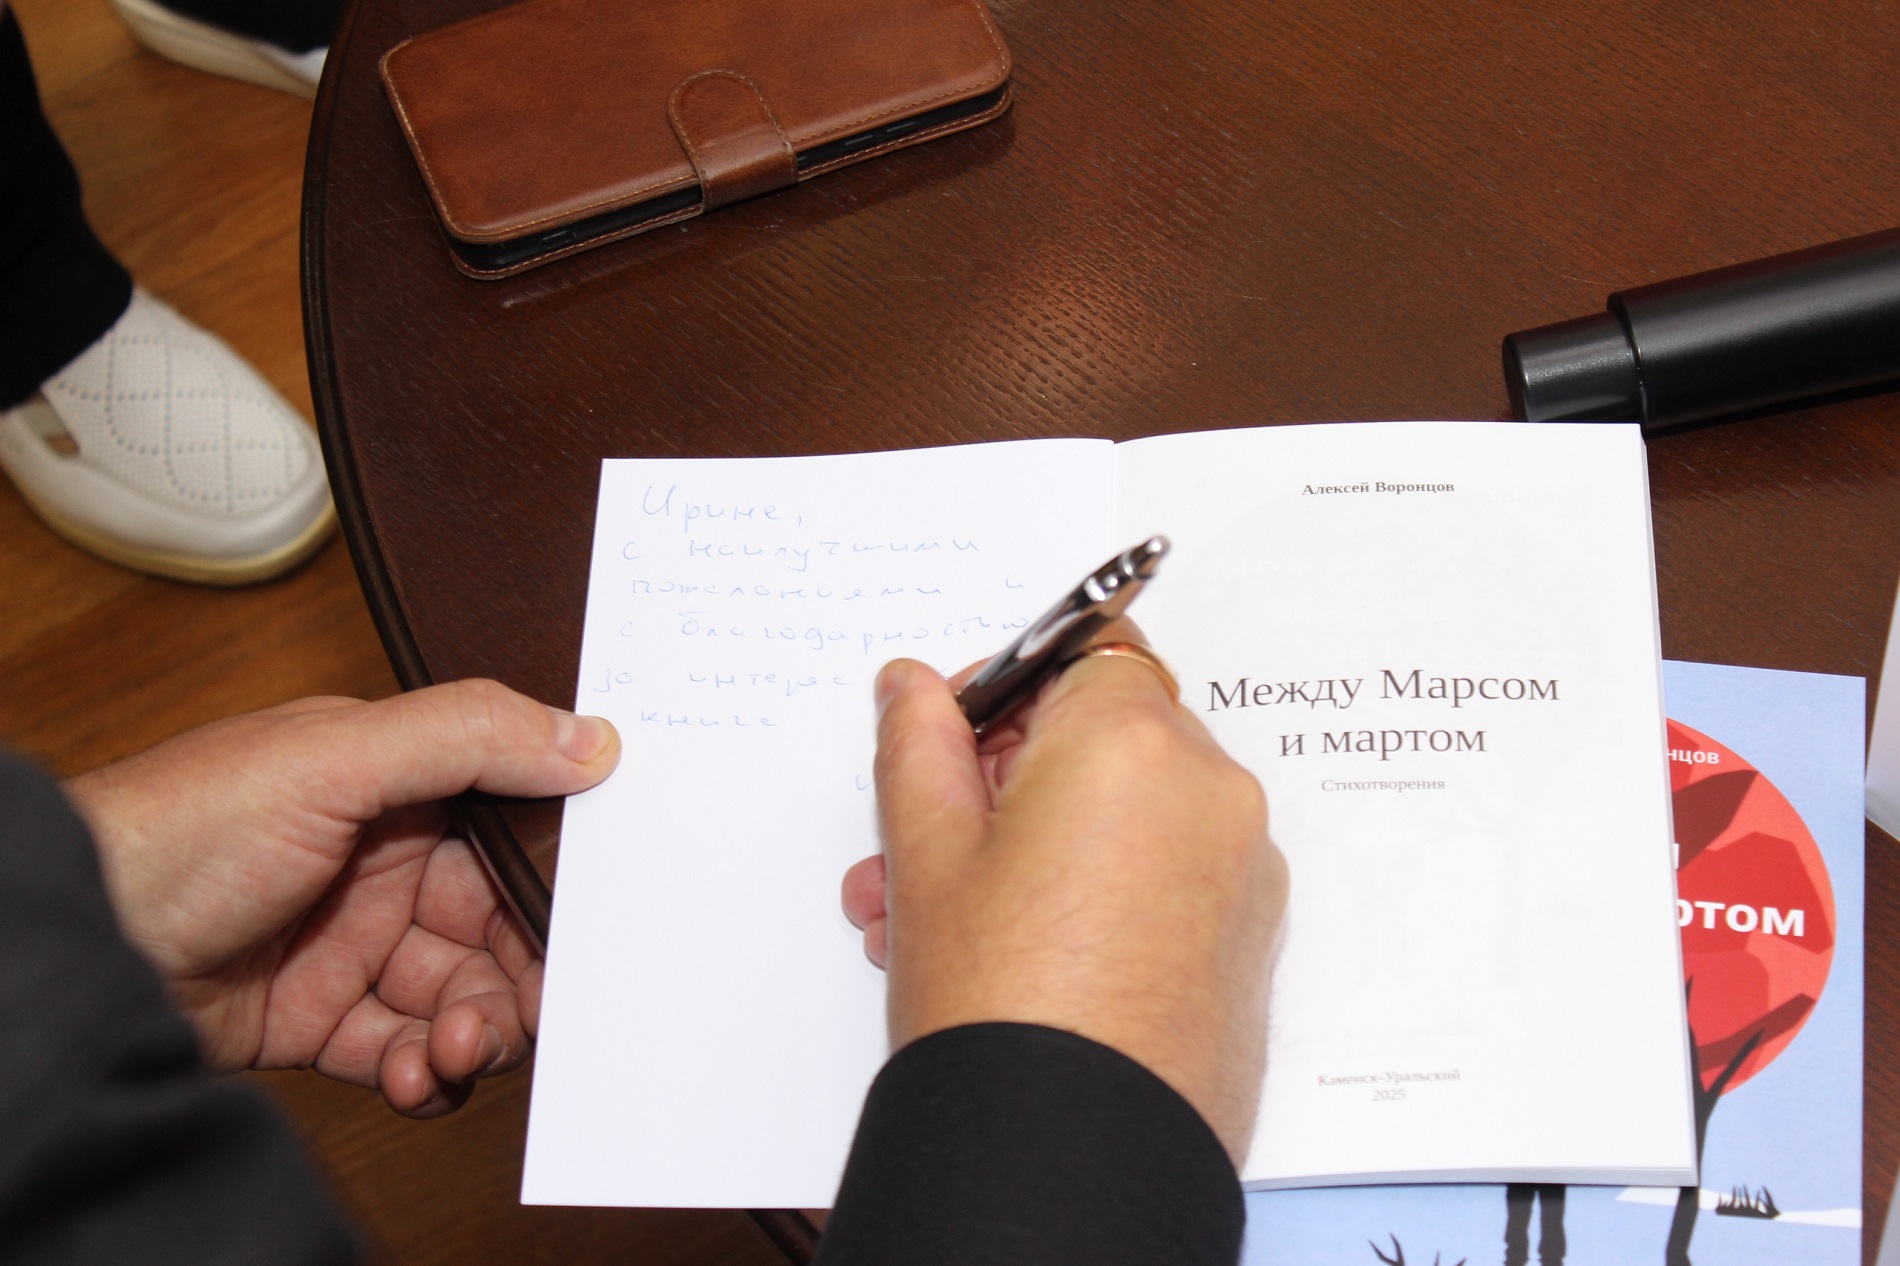 Ирине,
с наилучшими
пожеланиями и
с благодарностью
за интерес
книге
Алексей Воронцов
Между Марсом
и мартом
Стихотворения
Каменск-Уральский
2025
нцов
ртом